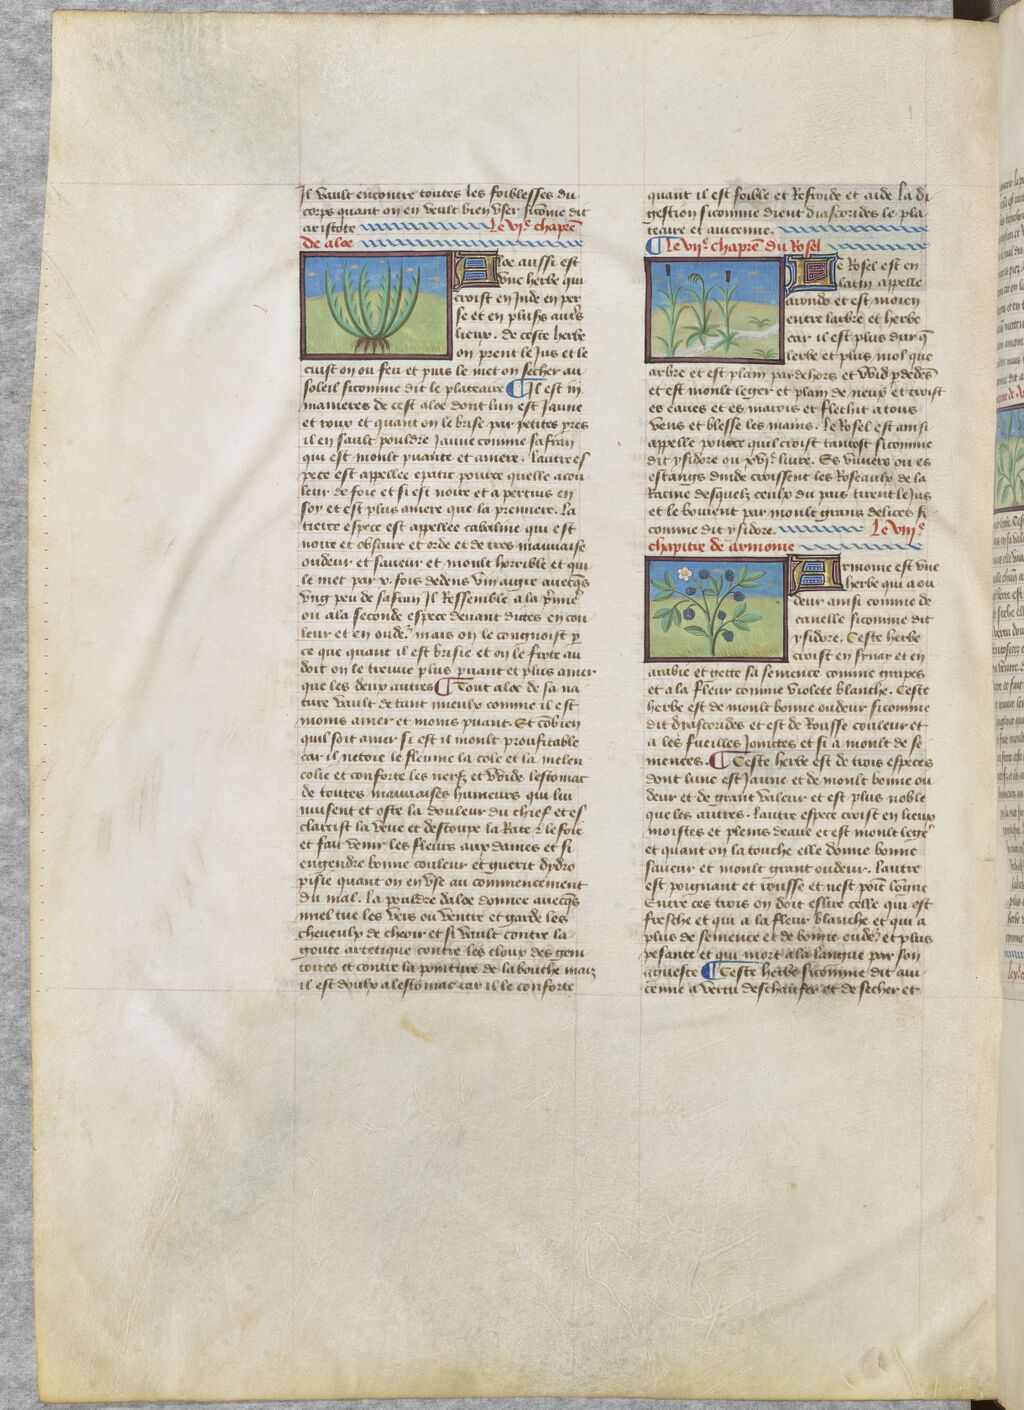 Il vault encontre toutes les foiblesses du
corps quant on en veult bien vser sicōme dit
aristote Le viᵉ. chapr̄e
de aloe
Aloe aussi est
vne herbe qui
croist en Jnde en per
se et en plusʳs autr̄s
lieux. de ceste herbe
on prent le Jus et le
cuist on ou feu et puis le met on secher au
soleil sicomme dit le plateaire ¶ Il est iij
manieres de cest aloe dont lun est Jaune
et roux et quant on le brise par petites pieces
il en sault pouldre Jaune comme safran
qui est moult puante et amere. Lautre es
pece est appellee epatic pource quelle a cou
leur de foie et si est noire et a pertuis en
soy et est plus amere que la premiere. La
tierce espece est appellee cabaline qui est
noire et obscure et orde et de tres mauuaise
oudeur et saueur et moult horrible et qui
le met par v. fois dedens vin aigre auecq̄s
vng peu de safran Il Ressemble a la p̄miē
ou a la seconde espece deuant dictes en cou
leur et en oudeʳ mais on le congnoist p
ce que quant il est brisie et on le frote au
doit on le treuue plus puant et plus amer
que les deux autres ¶ Tout aloe de sa na
ture vault de tant mieulx comme il est
moins amer et moins puant. Et cōbien
quil soit amer si est il moult prouffitable
car il netoie le fleume la cole et la melen
colie et conforte les nerfz et wide lestomac
de toutes mauuaises humeurs qui lui
nuisent et oste la douleur du chief et es
clarcist la veue et destoupe la Rate ⁊ le foie
et fait venir les fleurs aux dames et si
engendre bonne couleur et guerit dydro
pisie quant on en vse au commencement
du mal. La pouldre daloe donnee auecq̄s
miel tue les vers ou ventre et garde les
cheueulx de cheoir et si vault contre la
goute artetique contre les cloux des geni
toires et contre la pointure de la bouche mais
il est doulx a lestomac car il le conforte
quant il est foible et Refroide et aide la di
gestion sicomme dient diascorides le pla
teaire et auicenne.
¶ Le viiᵉ. chapr̄e du Rosel
Le Rosel est en
latin appelle
arondo et est moien
entre larbre et herbe
car il est plus dur q̄
lerbe et plus mol que
arbre et est plain par dehors et wid p dedēs
et est moult leger et plain de neux et croist
es eaues et es marois et flechit a tous
vens et blesse les mains. Le Rosel est ainsi
appelle pource quil croist tantost sicomme
dit ysidore ou xviᵉ. liure. Es viuiers ou es
estangs dinde croissent les Roseaulx de la
Racine desquelz ceulx du pais tirent le Jus
et le boiuent par moult grans delices si
comme dit ysidore. Le viiiᵉ.
chapitre de armonie
Armonie est vne
herbe qui a ou
deur ainsi comme de
canelle sicomme dit
ysidore. Ceste herbe
croist en synay et en
arabie et gette sa semence comme grapes
et a la fleur comme violete blanche. Ceste
herbe est de moult bonne oudeur sicomme
dit dyascorides et est de Rousse couleur et
a les fueilles Jointes et si a moult de se
mences. ¶ Ceste herbe est de trois especes
dont lune est Jaune et de moult bonne ou
deur et de grant valeur et est plus noble
que les autres. Lautre espece croist en lieux
moistes et pleins deaue et est moult legeʳ
et quant on la touche elle donne bonne
saueur et moult grant oudeur. Lautre
est poignant et rousse et nest poīt longue
Entre ces trois on doit eslire celle qui est
fresche et qui a la fleur blanche et qui a
plus de semence et de bonne oudeʳ et plus
pesante et qui mort a la langue par son
agueste ¶ Ceste herbe sicomme dit aui
cenne a vertu deschaufer et de secher et